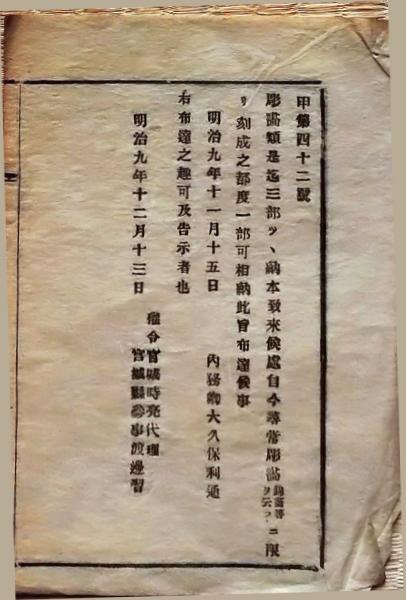 甲第四十二號
彫畵類是迄三部ツヽ納本致來候處自今尋常彫畵錦畵等ヲ云フニ限
リ刻成之都度一部可相納此旨布達候事
明治九年十一月十五日 內務卿大久保利通
右布達之趣可及吿示者也
明治九年十二月十三日
權令宮城時亮代理
宮城縣參事渡邊習